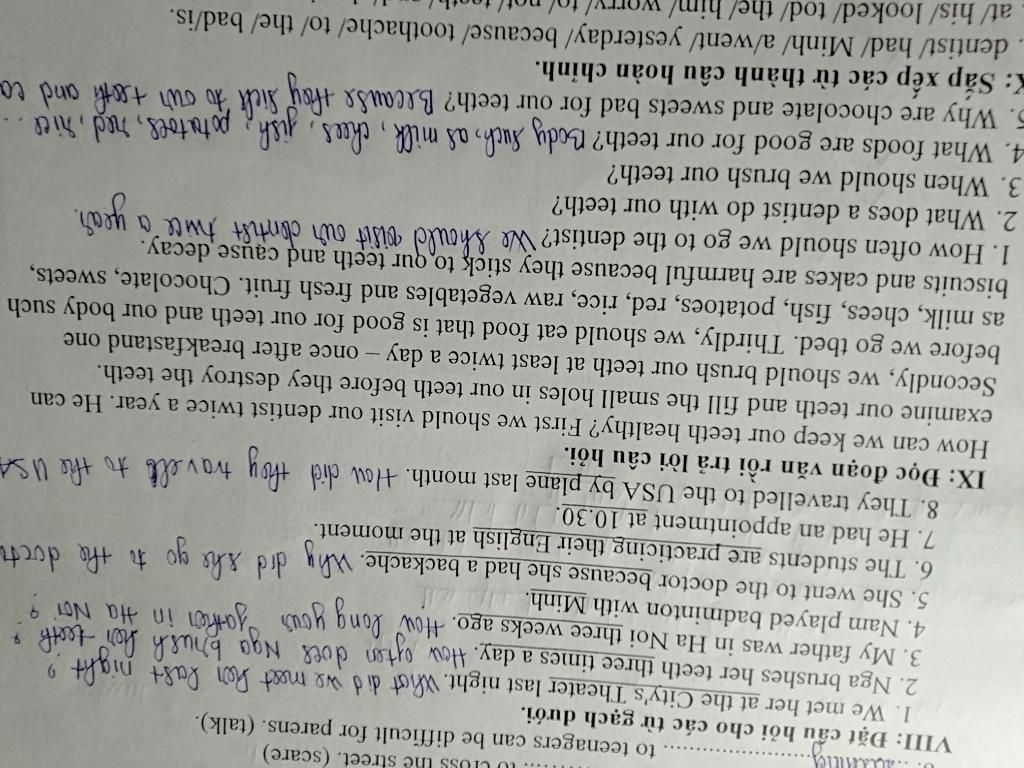 to cross the street. (scare)
to teenagers can be difficult for parens. (talk).
VIII: Đặt câu hỏi cho các từ gạch dưới.
1. We met her at the City's Theater last night. What did we meet her last night ?
2. Nga brushes her teeth three times a day. How often does Nga brush her teeth ?
3. My father was in Ha Noi three weeks ago. How long your father in Ha Noi ?
4. Nam played badminton with Minh.
5. She went to the doctor because she had a backache. Why did she go to the docto
6. The students are practicing their English at the moment.
7. He had an appointment at 10.30.
8. They travelled to the USA by plane last month. How did they travell to the USA
IX: Đọc đoạn văn rồi trả lời câu hỏi.
How can we keep our teeth healthy? First we should visit our dentist twice a year. He can
examine our teeth and fill the small holes in our teeth before they destroy the teeth.
Secondly, we should brush our teeth at least twice a day – once after breakfastand one
before we go tbed. Thirdly, we should eat food that is good for our teeth and our body such
as milk, chees, fish, potatoes, red, rice, raw vegetables and fresh fruit. Chocolate, sweets,
biscuits and cakes are harmful because they stick to our teeth and cause decay.
1. How often should we go to the dentist? We should visit our dentist twice a year.
2. What does a dentist do with our teeth?
3. When should we brush our teeth?
4. What foods are good for our teeth? Body such, as milk, chees, fish, potatoes, red, rice ...
5. Why are chocolate and sweets bad for our teeth? Because they sick to our teeth and ca
X: Sắp xếp các từ thành câu hoàn chỉnh.
. dentist/ had/ Minh/ a/went/ yesterday/ because/ toothache/ to/ the/ bad/is.
at/ his/ looked/ tod/ the/ him/ worry/ to/ not/ teeth/